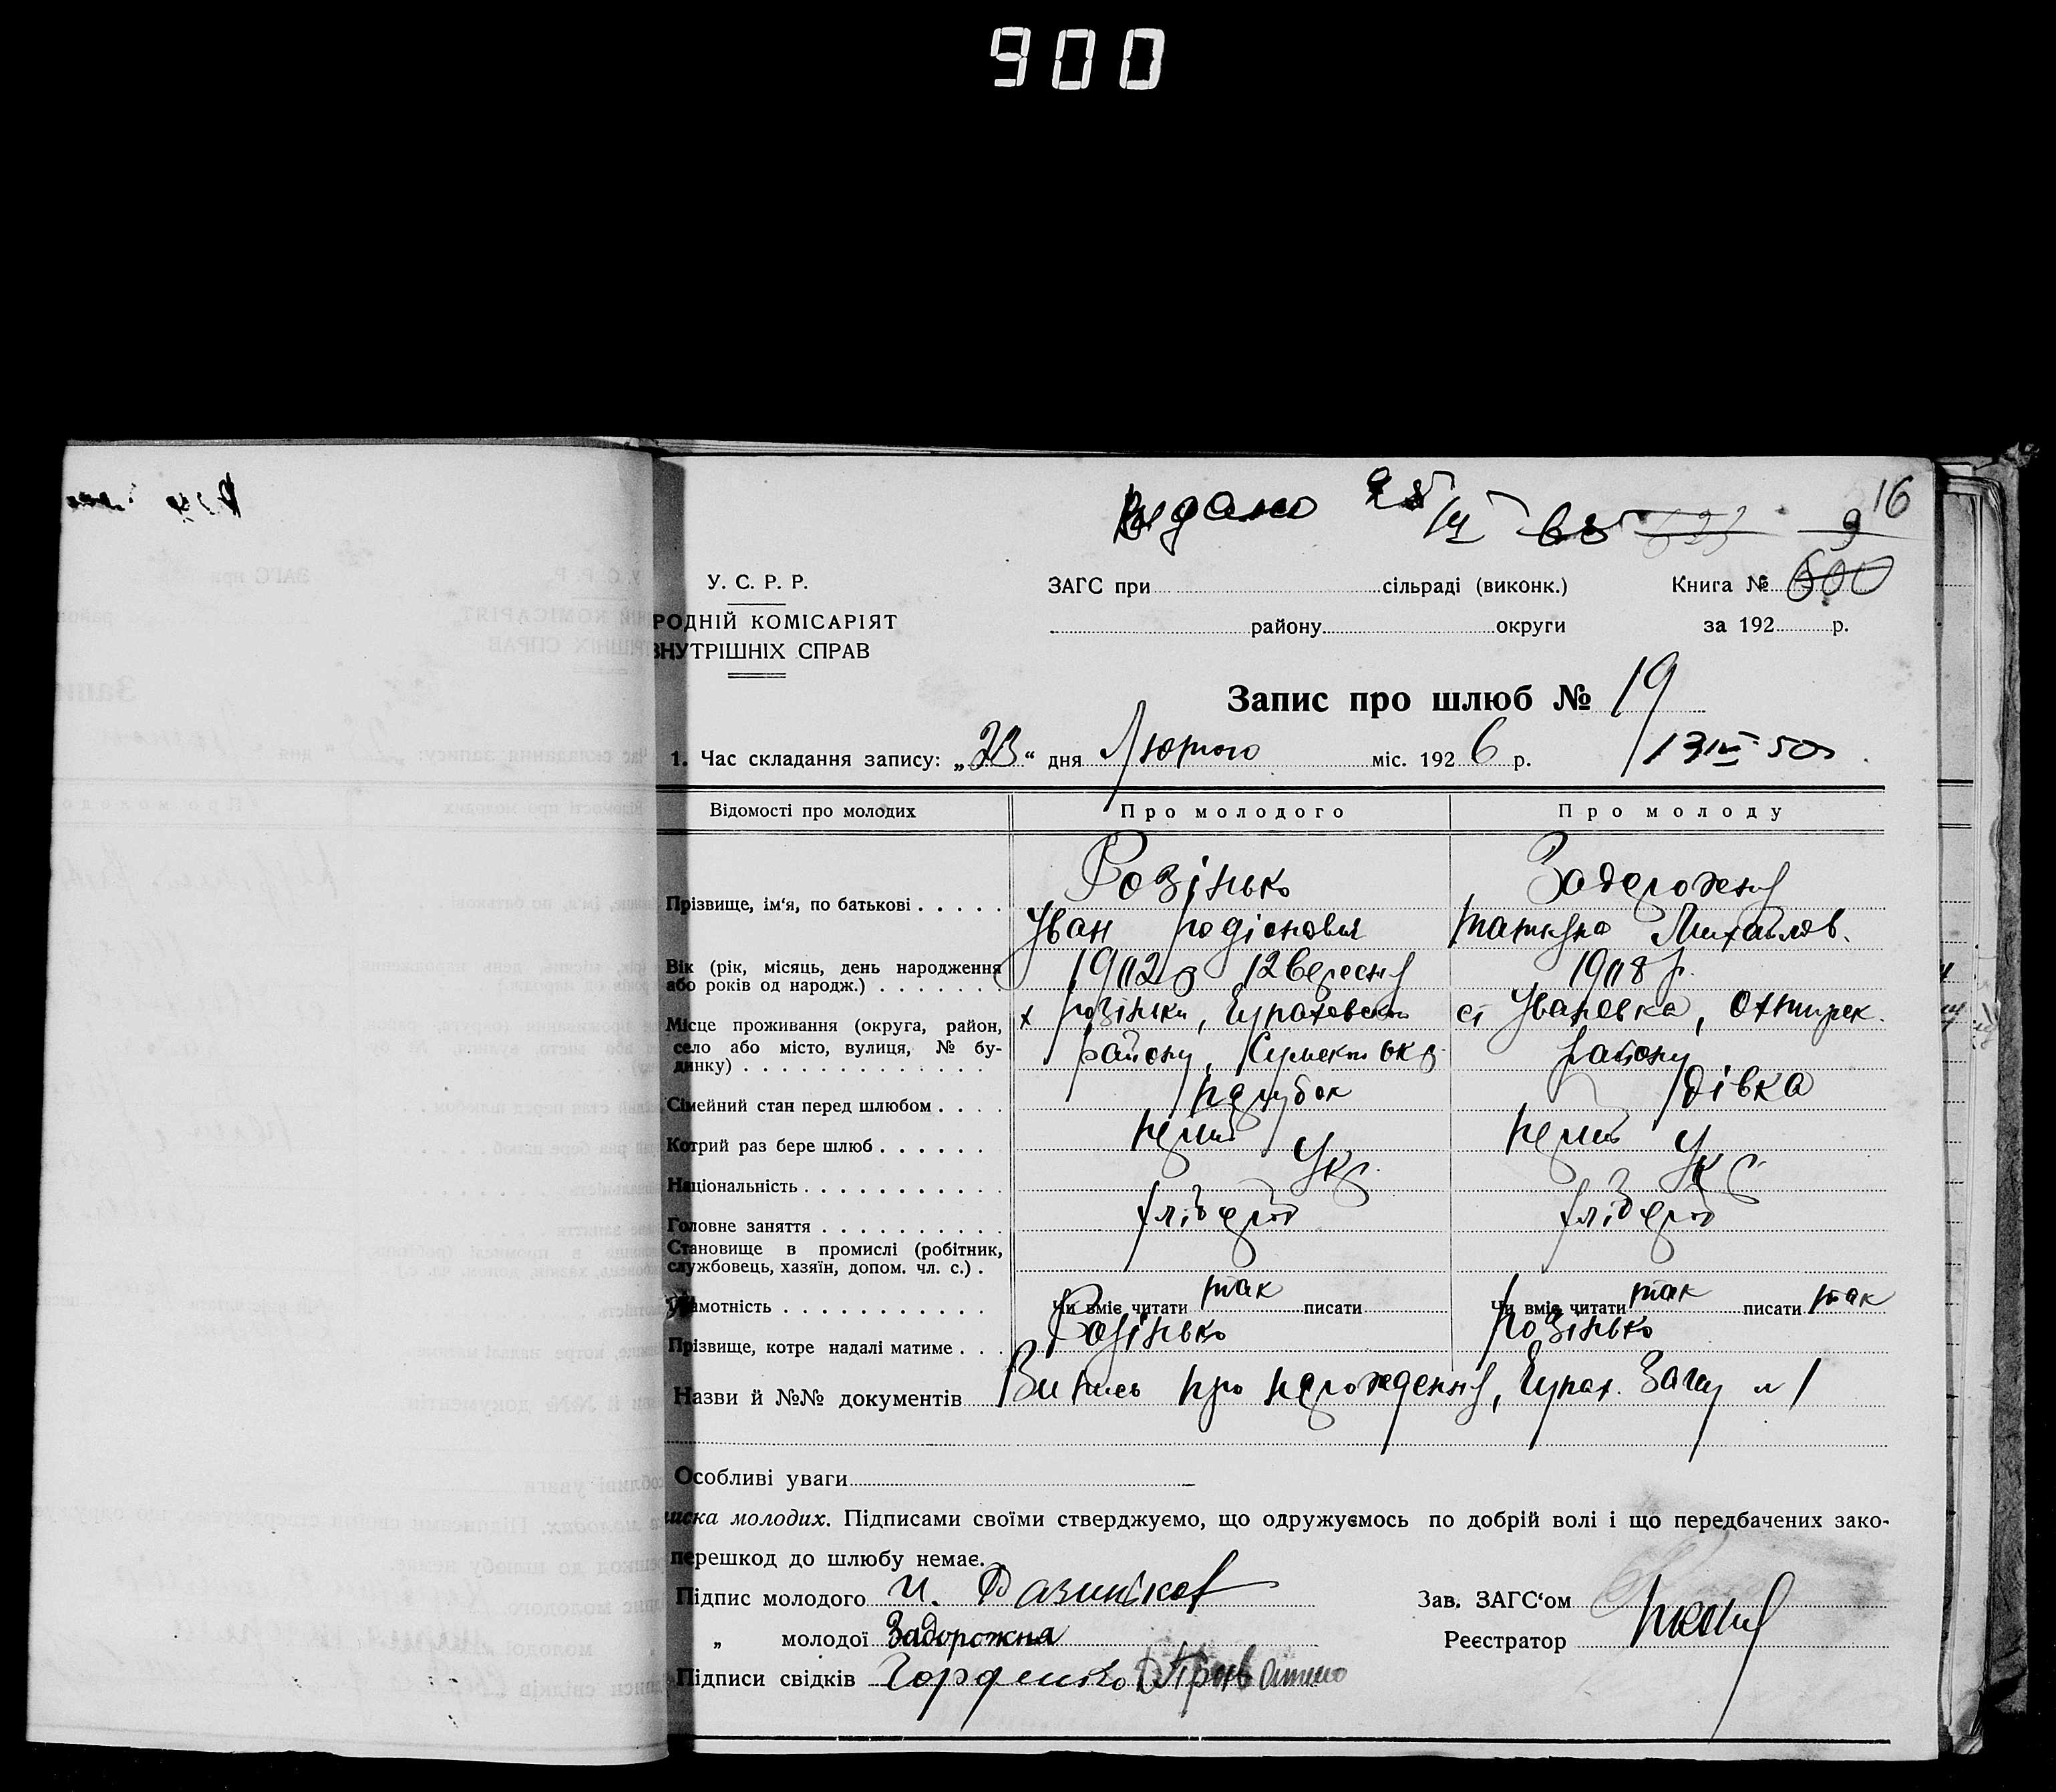 900
Видано 25/IV 65 16
9
У. С. Р. Р. ЗАГС при сільраді (виконк.) Книга № 600
РОДНІЙ КОМІСАРІЯТ району округи за 192 р.
ВНУТРІШНІХ СПРАВ
Запис про шлюб № 19
1. Час складання запису: „23“ дня Лютого міс. 1926 р. 13 IV 50
Відомості про молодих Про молодого Про молоду
Розінько Задорожня
Прізвище, ім'я, по батькові
Іван Родіонович Михайлов.
Вік (рік, місяць, день народження 12 вересня 1908 р.
або років од народж.)
х Розіньки, ст Івановка, Охтирск.
Місце проживання (округа, район,
село або місто, вулиця, № бу- району, Сумськ окр району
динку)
Сімейний стан перед шлюбом парубок дівка
Котрий раз бере шлюб перший перший
Національність Укр. Укр.
Головне заняття хлібороб хлібороб
Становище в промислі (робітник,
службовець, хазяїн, допом. чл. с.)
амотність Чи вміє читати так писати Чи вміє читати так писати так
Прізвище, котре надалі матиме Розінько Розінько
Назви й №№ документів Витпись про народження, Загсу № 1
Особливі уваги
иска молодих. Підписами своїми стверджуємо, що одружуємось по добрій волі і що передбачених зако-
перешкод до шлюбу немає.
Підпис молодого И. Зав. ЗАГС'ом
„ молодої Задорожна Реєстратор
Підписи свідків Горденко